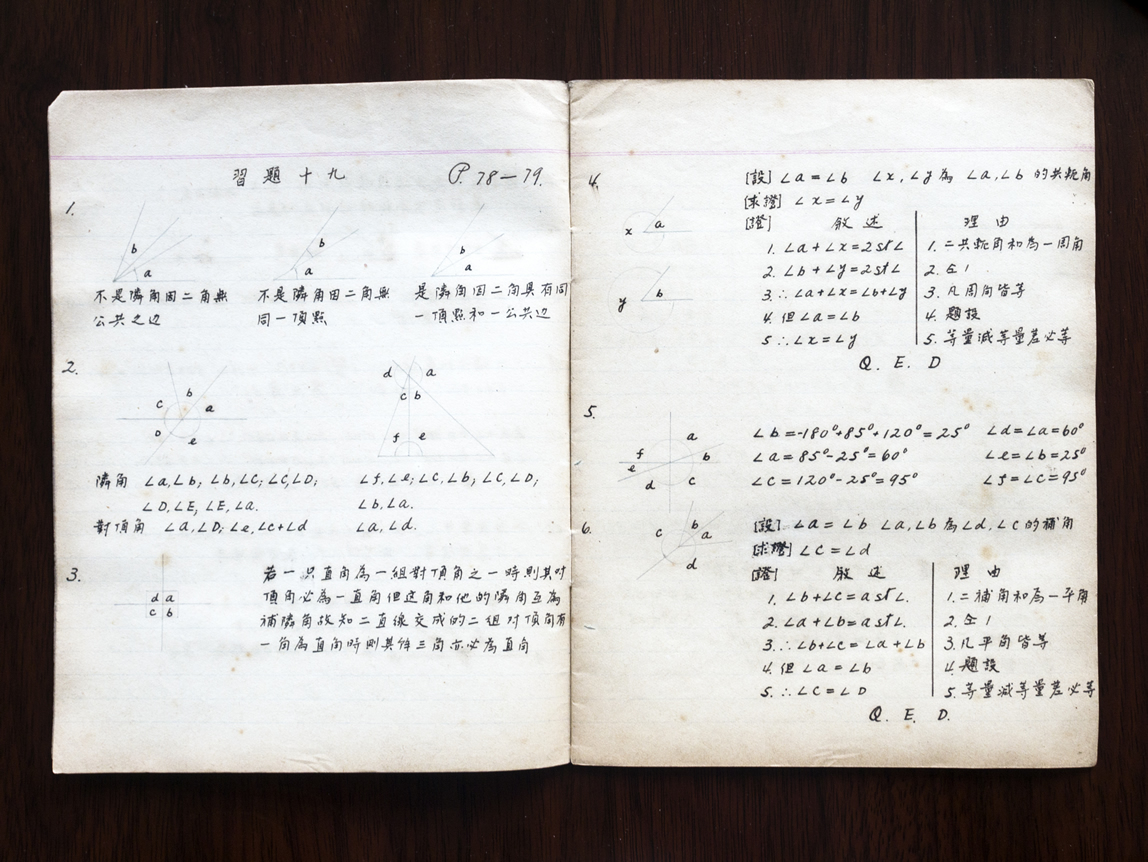 習題十九 P. 78—79.
1.
b
a
b
a
b
a
不是隣角因二角無
公共之边
不是隣角因二角無
同一頂點
是隣角因二角具有同
一頂點和一公共边
2.
c b a
D e
d a
c b
f e
隣角 ∠a,∠b; ∠b,∠C; ∠C,∠D;
∠D,∠E, ∠E,∠a.
∠f,∠e; ∠C,∠b; ∠C,∠D;
∠b,∠a.
對頂角 ∠a,∠D; ∠e,∠c+∠d
∠a,∠d.
3.
d a
c b
若一只直角為一組對頂角之一時則其对
頂角必為一直角但这角和他的隣角互為
補隣角故知二直線交成的二組对頂角有
一角為直角時則其佯三角亦必為直角
4.
x a
y b
[設] ∠a=∠b ∠x,∠y為 ∠a,∠b 的共軛角
[求證] ∠x=∠y
[證] 敘述 理由
1. ∠a+∠x=2st∠ 1. 二共軛角和為一周角
2. ∠b+∠y=2st∠ 2. 仝1
3. ∴∠a+∠x=∠b+∠y 3. 凡周角皆等
4. 但∠a=∠b 4. 題設
5. ∴∠x=∠y 5. 等量減等量差必等
Q. E. D
5.
a
f b
e
d c
∠b=-180°+85°+120°=25° ∠d=∠a=60°
∠a=85°-25°=60° ∠e=∠b=25°
∠c=120°-25°=95° ∠f=∠c=95°
6.
c b a
d
[設] ∠a=∠b ∠a,∠b為∠d,∠c的補角
[求證] ∠c=∠d
[證] 敘述 理由
1. ∠b+∠c=a st∠. 1. 二補角和為一平角
2. ∠a+∠b=a st∠. 2. 仝1
3. ∴∠b+∠c=∠a+∠b 3. 凡平角皆等
4. 但∠a=∠b 4. 題設
5. ∴∠C=∠D 5. 等量減等量差必等
Q. E. D.